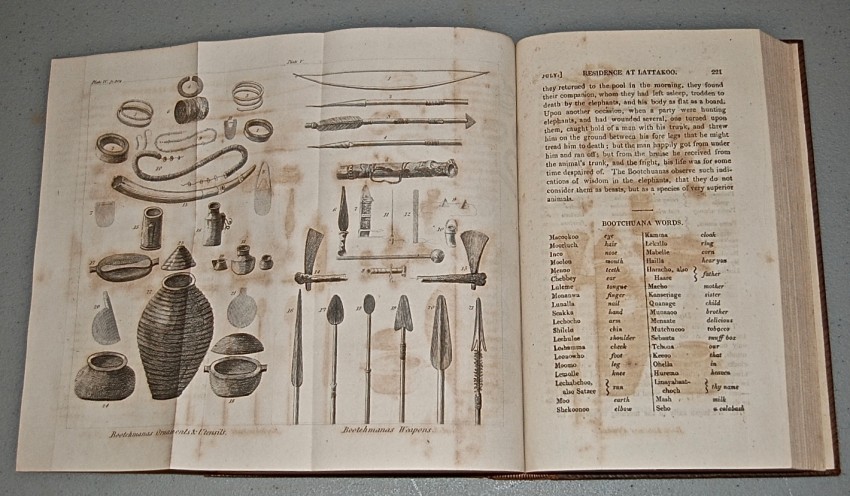 Plate V.
Bootchuanas Ornaments & Utensils.
Bootchuanas Weapons.
JULY.] RESIDENCE AT LATTAKOO. 221
they returned to the pool in the morning, they found
their companion, whom they had left asleep, trodden to
death by the elephants, and his body as flat as a board.
Upon another occasion, when a party were hunting
elephants, and had wounded several, one turned upon
them, caught hold of a man with his trunk, and threw
him on the ground between his fore legs that he might
tread him to death; but the man happily got from under
him and ran off; but from the bruise he received from
the animal's trunk, and the fright, his life was for some
time despaired of. The Bootchuanas observe such indi-
cations of wisdom in the elephants, that they do not
consider them as beasts, but as a species of very superior
animals.
BOOTCHUANA WORDS.
Macookoo eye Kamma cloak
Mooriuch hair Lekulla ring
Inco nose Mabelie corn
Moolou mouth Hailla hear you
Menno teeth Huracho, also
Chebbey ear Haare father
Luleme tongue Macho mother
Monanwa finger Kanseriage sister
Lunalla nail Quanage child
Seakka hand Munnaoo brother
Lechocho arm Menaate delicious
Shilelu chin Mutchucoo tobacco
Lechuloe shoulder Seboota snuff box
Leshamma cheek Tchuna our
Leouowho foot Keeoo that
Moomo leg Ohella in
Lewolle knee Huremu hooma
Lechabehoo, Linayabaat-
also Satsee sun choch thy name
Moo earth Mash milk
Shekoonoo elbow Sebo a calabash